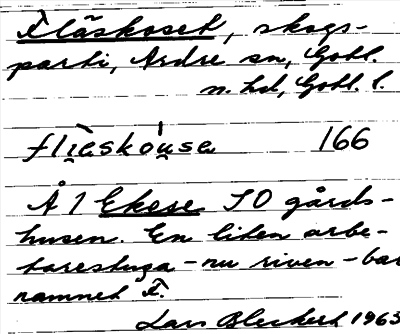 Fläskoset, skogs-
parti, Ardre sn, Gotl.
n. hd, Gotl. l.
fli̯àsko̯u̯sa 166
Å 1 Ekese SO gårds-
husen. En liten arbe-
tarestuga - nu riven - bar
namnet F.
Lars Bleckert 1963